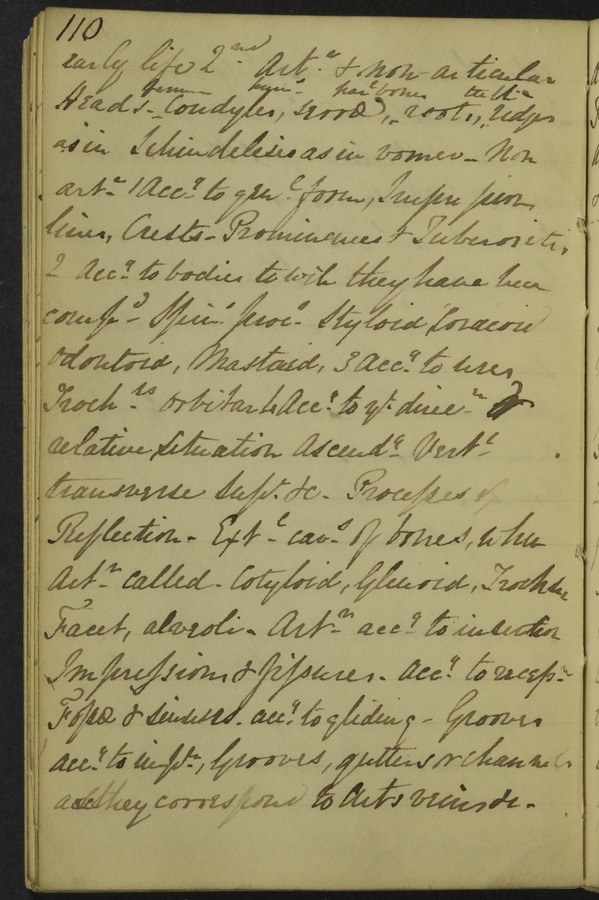 110
early life 2nd Artn & non-articular
femur hair bones teeth
Heads - Condyles, serræ, roots, ridges
as in Schindelesis as in vomer - Non
artn 1 Accg to genl form, Impressions
lines, Crests - Prominences & Tuberosities
2 Accg to bodies to wh they have been
compd - Spins proc Styloid Coracoid
Odontoid, Mastoid, 3 Accg to uses
Trochrs orbitar 4 Accg to yr direcn &
relative situation Ascendg Vertl
transverse Supr &c - Processes of
Reflection - Extl cavs of bones, when
Artn called - Cotyloid, Glenoid, Trochlea
Facet, alveoli - Artn accg to insertion
Impressions & fissures - accg to recepn
Fossæ & sinuses - accg to gliding - Grooves
accg to impn, Grooves, gutters or channels
as they correspond to Arts veins &c -